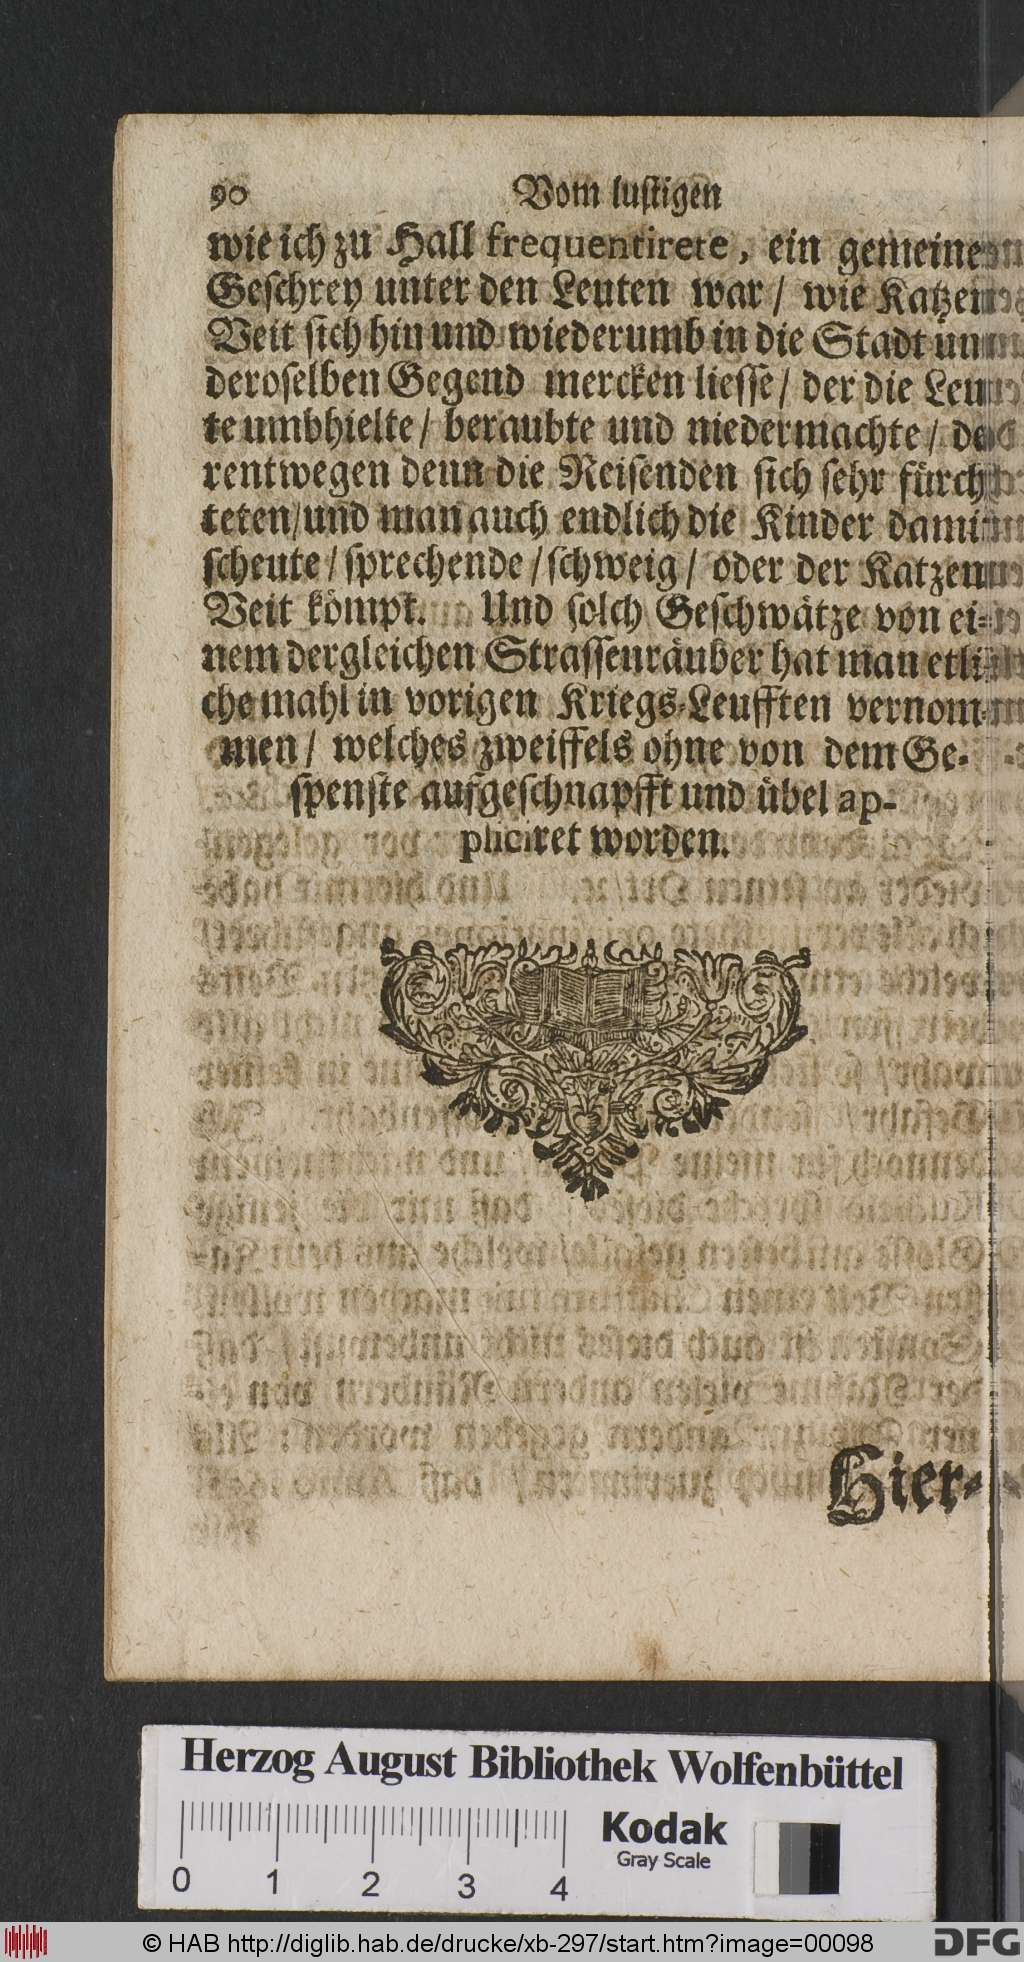 90 Vom lustigen
wie ich zu Hall frequentirete, ein gemeine
Geschrey unter den Leuten war / wie Katzen
Veit sich hin und wiederumb in die Stadt un
deroselben Gegend mercken liesse / der die Leu
te umbhielte / beraubte und niedermachte / de
rentwegen denn die Reisenden sich sehr fürch
teten / und man auch endlich die Kinder dami
scheute / sprechende / schweig / oder der Katzen
Veit kömpt. Und solch Geschwätze von ei-
nem dergleichen Strassenräuber hat man etli
che mahl in vorigen Kriegs-Leufften vernom-
men / welches zweiffels ohne von dem Ge-
spenste aufgeschnapfft und übel ap-
pliciret worden.
Hier-
Herzog August Bibliothek Wolfenbüttel
Kodak
Gray Scale
0 1 2 3 4
© HAB http://diglib.hab.de/drucke/xb-297/start.htm?image=00098
DFG